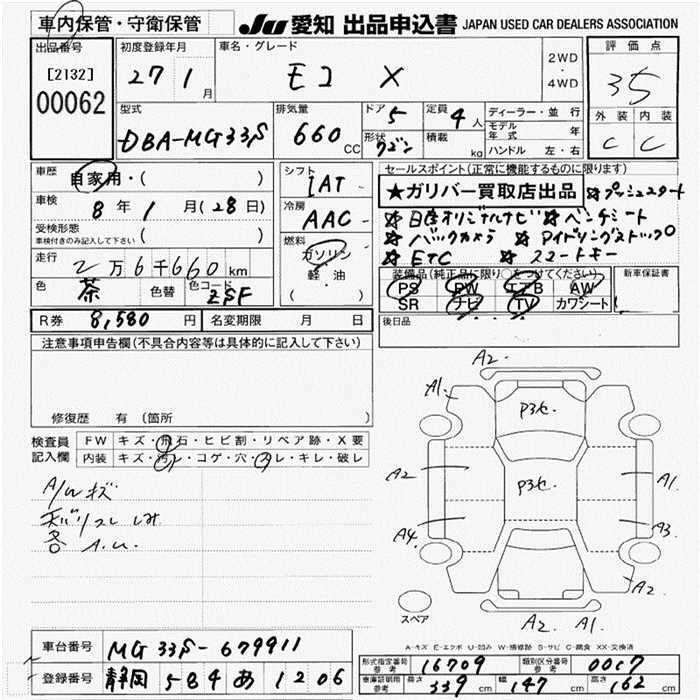 車内保管・守衛保管
JU 愛知 出品申込書 JAPAN USED CAR DEALERS ASSOCIATION
出品番号
[2132]
00062
初度登録年月
27 1 月
車名・グレード
モコ X
2WD
・
4WD
評価点
35
外装 内装
C C
型式
DBA-MG33S
排気量
660 CC
ドア 5
形状 ワゴン
定員 4 人
積載 kg
ディーラー・並行
モデル年式 年
ハンドル 左・右
車歴 自家用・( )
車検 8 年 1 月 (28 日)
受検形態
車検付きのみ記入して下さい ( )
走行 2 万 6 千 660 km
色 茶 色替 色コード ZSF
シフト
IAT
冷房
AAC
燃料
ガソリン
軽・油
( )
セールスポイント(正常に機能するものに限ります)
★ガリバー買取店出品 ☆プッシュスタート
☆日産オリジナルナビ ☆ベンチシート
☆バックカメラ ☆アイドリングストップ
☆ETC ☆スマートキー
装備品(純正品に限り○をつけてください) 新車保証書
PS PW エアB AW
SR ナビ TV カワシート
後日品
R券 8,580 円 名変期限 月 日
注意事項申告欄(不具合内容等は具体的に記入して下さい)
修復歴 有 (箇所 )
検査員記入欄
FW キズ・飛石・ヒビ割・リペア跡・X要
内装 キズ・汚レ・コゲ・穴・スレ・キレ・破レ
A/Wキズ
天バリスレ しみ
各 A.U.
A2
A1
P3セ
P3セ
A2
A1
A4
A3
A2
A2 A1
スペア
A-キズ E-エクボ U-凹み W-補修跡 S-サビ C-腐食 XX-交換済
車台番号 MG33S-679911
登録番号 静岡 584 あ 1206
形式指定番号 参考 16709 類別区分番号 参考 0017
車庫証明用 参考 長さ 339 cm 幅 147 cm 高さ 162 cm